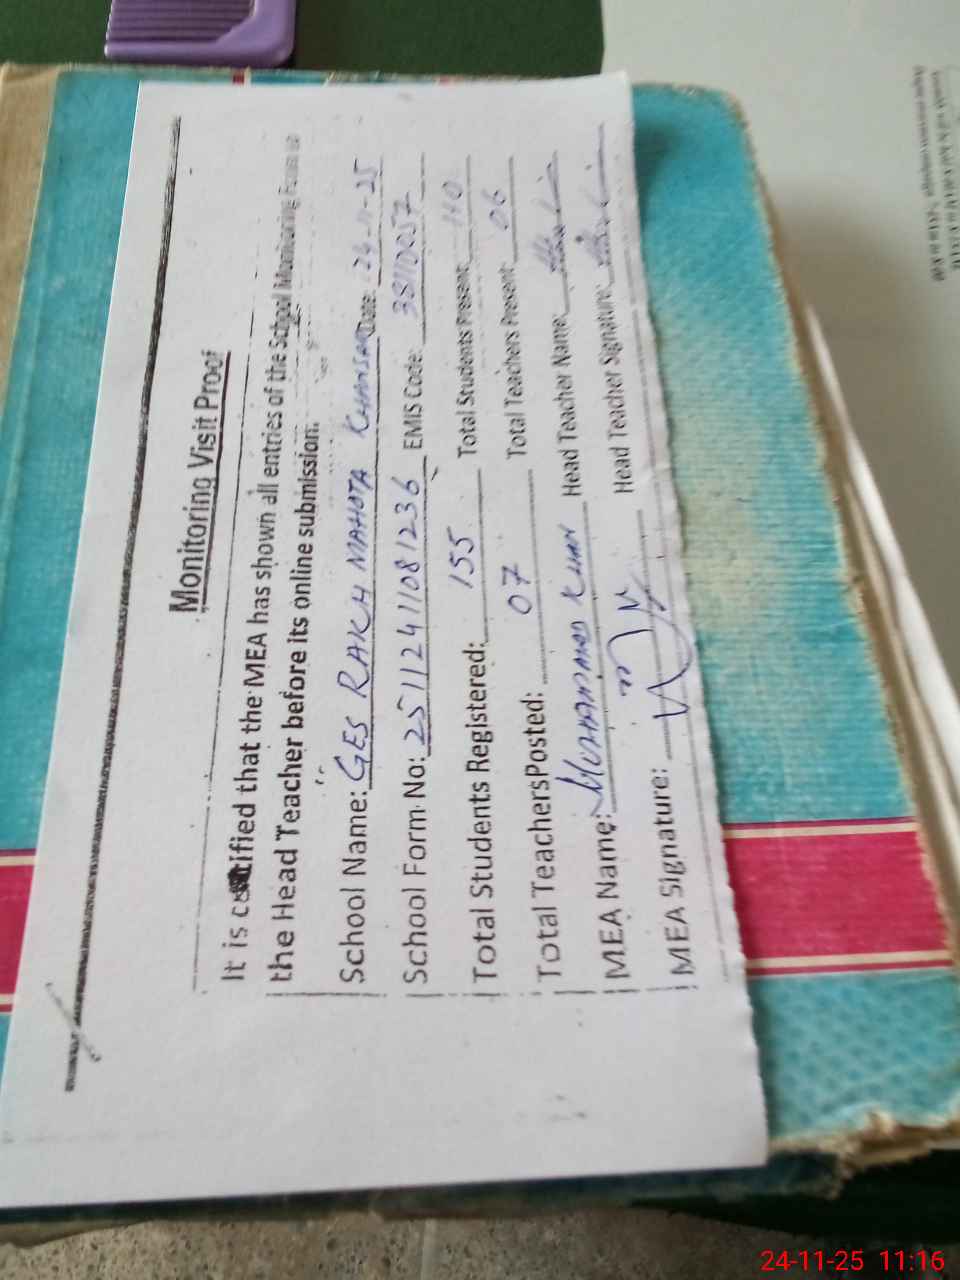 Monitoring Visit Proof
It is certified that the MEA has shown all entries of the School Monitoring
the Head Teacher before its online submission.
School Name: GES RAKH MAHOTA KHANSAR Date: 24-11-25
School Form No: 25112411081236 EMIS Code: 38110057
Total Students Registered: 155 Total Students Present: 110
Total TeachersPosted: 07 Total Teachers Present: 06
MEA Name: MUHAMMAD KHAN Head Teacher Name:
MEA Signature: Head Teacher Signature:
24-11-25 11:16